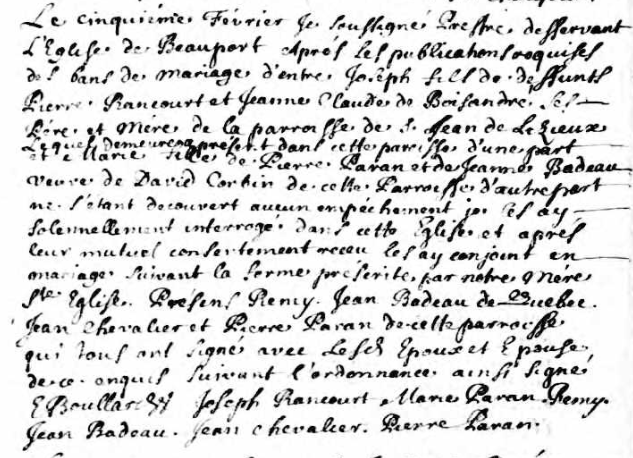 Le cinquiéme Février Je soussigné Prestre desservant
l'Eglise de Beauport Aprés les publications requises
des bans de mariage d'entre Joseph fils de deffunts
Pierre Rancourt et Jeanne Claude de Boisandre ses
Pére et Mére de la parroisse de S. Jean de Lezieux
Lequel demeure a present dans cette parroisse d'une part
et Marie fille de Pierre Paran et de Jeanne Badeau
veuve de David Corbin de cette Parroisse d'autre part
ne s'étant decouvert aucun empéchement je les ay
solennellement interrogé dans cette Eglise et aprés
leur mutuel consentement receu les ay conjoint en
mariage suivant la forme préscrite par notre Mére
Ste Eglise. Présens Remy. Jean Badeau de Quebec.
Jean Chevalier et Pierre Paran de cette parroisse
qui tous ont signé avec Lesd Epoux et Epouse
de ce enquis suivant l'ordonnance ainsi signé
E Boullard Joseph Rancourt Marie Paran. Remy.
Jean Badeau. Jean Chevalier. Pierre Paran.